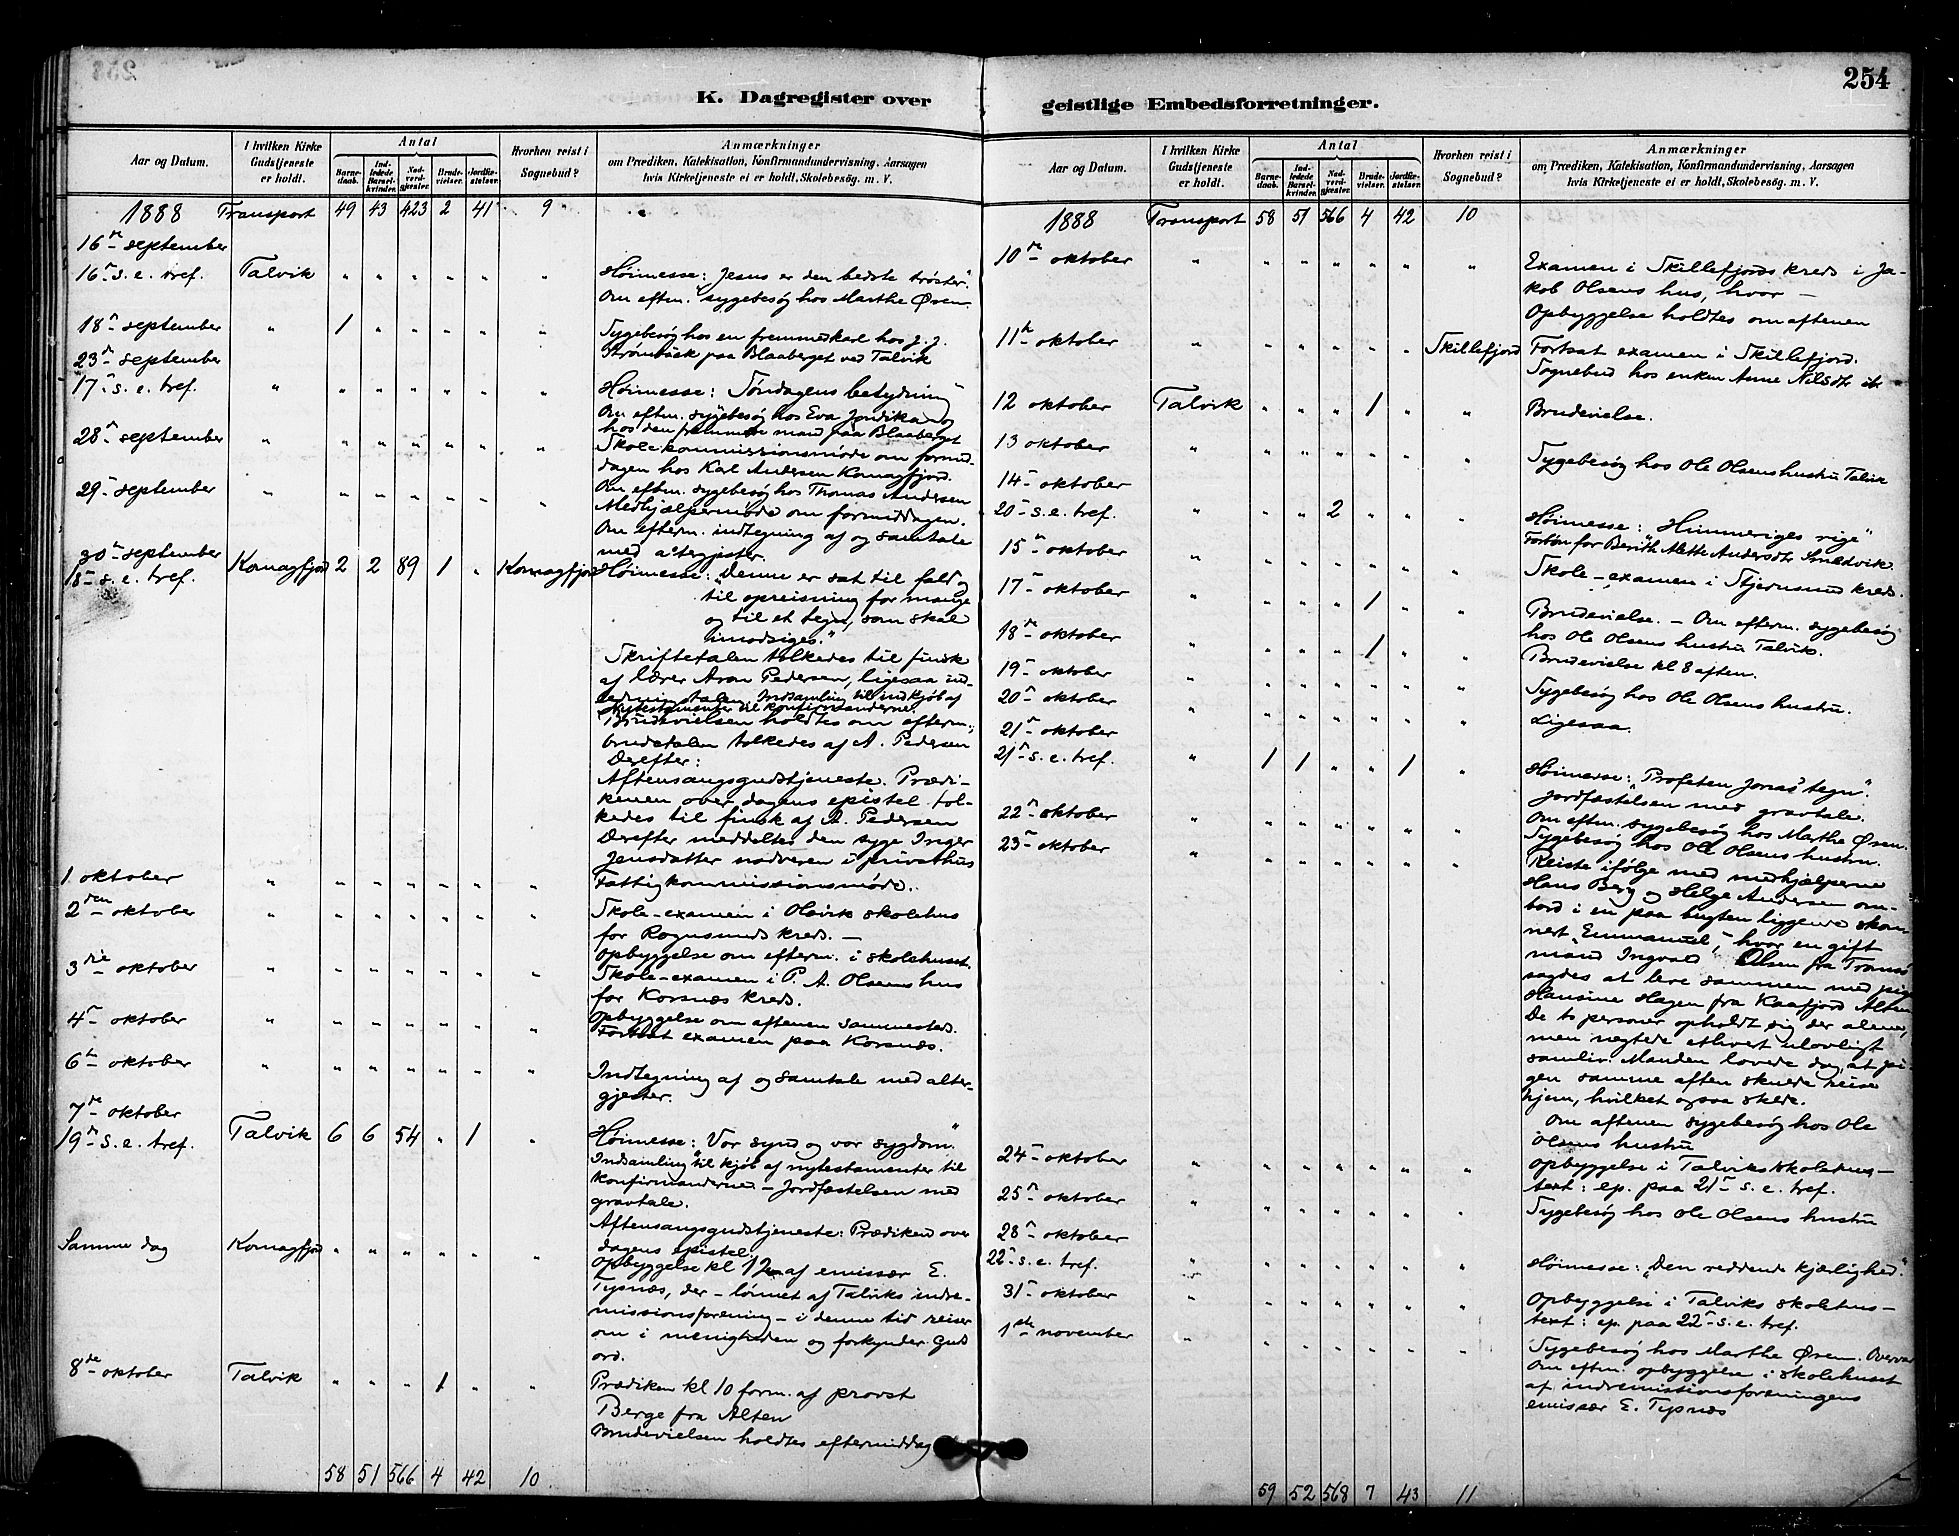 254
K. Dagregister over geistlige Embedsforretninger.
Aar og Datum. | I hvilken Kirke Gudstjeneste er holdt. | Antal | Barnedaab. | Indledede Barselkvinder. | Nadverdgjester. | Brudevielser. | Jordfæstelser. | Hvorhen reist i Sognebud? | Anmærkninger om Prædiken, Katekisation, Konfirmandundervisning, Aarsagen hvis Kirketjeneste ei er holdt, Skolebesøg. m. V.
1888 Transport 49 43 423 2 41 9
16de september
16de s. e. tref. Talvik " " " " " " Høimesse: „Jesus er den bedste trøster".
Om eftm. sygebesøg hos Marthe Øren.
18de september " 1 " " " " " Sygebesøg hos en fremmed karl hos J. J.
Strømbæk paa Blaaberget ved Talvik
23de september
17de s. e. tref. " " " " " " " Høimesse: „Søndagens betydning"
Om eftm. sygebesøg hos Eva Jondika og
hos den fremmede mand paa Blaaberget
28de september " " " " " " " Skolekommissionsmøde om formid-
dagen hos Karl Andersen Komagfjord.
Om eftm. sygebesøg hos Thomas Andersen
29de september " " " " " " " Medhjælpermøde om formiddagen.
Om efterm. indtegning af og samtale
med altergjester.
30te september
18de s. e. tref. Komagfjord 2 2 89 1 " Komagfjord Høimesse: „Denne er sat til fald og
til opreisning for mange
og til et tegn, som skal
imodsiges."
Skriftetalen tolkedes til finsk
af lærer Aron Pedersen, ligesaa ind-
ledningstalen. Indsamling til indkjøb af
Nytestamenter til konfirmanderne.
Brudevielsen holdtes om efterm.;
brudetalen tolkedes af A. Pedersen
Derefter:
Aftensangsgudstjeneste. Prædi-
kenen over dagens epistel tol-
kedes til finsk af A. Pedersen
Derefter meddeltes den syge Inger
Jensdatter nadveren i privathus
1 oktober " " " " " " " Fattigkommissionsmøde.
2den oktober " " " " " " " Skole-examen i Olavik skolehus
for Rognsunds kreds. —
Opbyggelse om efterm. i skolehuset.
3die oktober " " " " " " " Skole-examen i P. A. Olsens hus
for Korsnæs kreds.
Opbyggelse om aftenen sammesteds.
4de oktober " " " " " " " Fortsat examen paa Korsnæs.
6te oktober " " " " " " " Indtegning af og samtale med alter-
gjester.
7de oktober
19de s. e. tref. Talvik 6 6 54 " 1 " Høimesse: „Vor synd og vor sygdom".
Indsamling til kjøb af nytestamenter til
konfirmanderne — Jordfæstelsen med
gravtale.
Samme dag Komagfjord " " " " " " Aftensangsgudstjeneste: Prædiken over
dagens epistel.
Opbyggelse kl 12 af emissær E.
Tysnæs, der — lønnet af Talviks indre-
missionsforening — i denne tid reiser
om i menigheden og forkynder Guds
ord.
8de oktober Talvik " " " 1 " " Prædiken kl 10 form. af provst
Berge fra Alten
Brudevielsen holdtes eftermiddag
58 51 566 4 42 10
Aar og Datum. | I hvilken Kirke Gudstjeneste er holdt. | Antal | Barnedaab. | Indledede Barselkvinder. | Nadverdgjester. | Brudevielser. | Jordfæstelser. | Hvorhen reist i Sognebud? | Anmærkninger om Prædiken, Katekisation, Konfirmandundervisning, Aarsagen hvis Kirketjeneste ei er holdt, Skolebesøg. m. V.
1888 Transport 58 51 566 4 42 10
10de oktober " " " " " " " Examen i Skillefjords kreds i Ja-
kob Olsens hus, hvor —
Opbyggelse holdtes om aftenen
11te oktober " " " " " " Skillefjord Fortsat examen i Skillefjord.
Sognebud hos enken Anne Nilsdtr
12 oktober Talvik " " " 1 " " Brudevielse.
13 oktober " " " " " " " Sygebesøg hos Ole Olsens hustru Talvik
14de oktober
20de s. e. tref. " " " 2 " " " Høimesse: „Himmeriges rige"
Forbøn for Berith Mette Andersdtr
15de oktober " " " " " " " Skole-examen i Stjernsund kreds.
17de oktober " " " " 1 " " Brudevielse. — Om efterm. sygebesøg
hos Ole Olsens hustru Talvik.
18de oktober " " " " 1 " " Brudevielse kl 8 aften.
19de oktober " " " " " " " Sygebesøg hos Ole Olsens hustru.
20de oktober " " " " " " " Ligesaa.
21de oktober
21de s. e. tref. " 1 1 " " 1 " Høimesse: „Profeten Jonas' tegn".
Jordfæstelsen med gravtale.
Om eftm. sygebesøg hos Marthe Øren.
22de oktober " " " " " " " Sygebesøg hos Ole Olsens hustru.
23de oktober " " " " " " " Reiste ifølge med medhjælperne
Hans Berg og Helge Andersen om-
bord i en paa bugten liggende skon-
nert „Emmanuel", hvor en gift
mand Ingvald Olsen fra Tromsø
sagdes at leve sammen med pige
Hansine Hagen fra Kaafjord Alten
De to personer opholdt sig der alene,
men nægtede ethvert ulovligt
samliv. Manden lovede dog, at pi-
gen samme aften skulde reise
hjem, hvilket ogsaa skede.
Om aftenen sygebesøg hos Ole
Olsens hustru
24de oktober " " " " " " " Opbyggelse i Talviks skolehus —
text: ep. paa 21de s. e. tref.
25de oktober " " " " " " " Sygebesøg hos Ole Olsens hustru
28de oktober
22de s. e. tref. " " " " " " " Høimesse: „Den reddende kjærlighed".
31te oktober " " " " " " " Opbyggelse i Talviks skolehus —
text: ep. paa 22de s. e. tref.
1ste november " " " " " " " Sygebesøg hos Marthe Øren. Overvar
om eftm. opbyggelse i skolehuset
af indremissionsforeningens
emissær E. Tysnæs
59 52 568 7 43 11